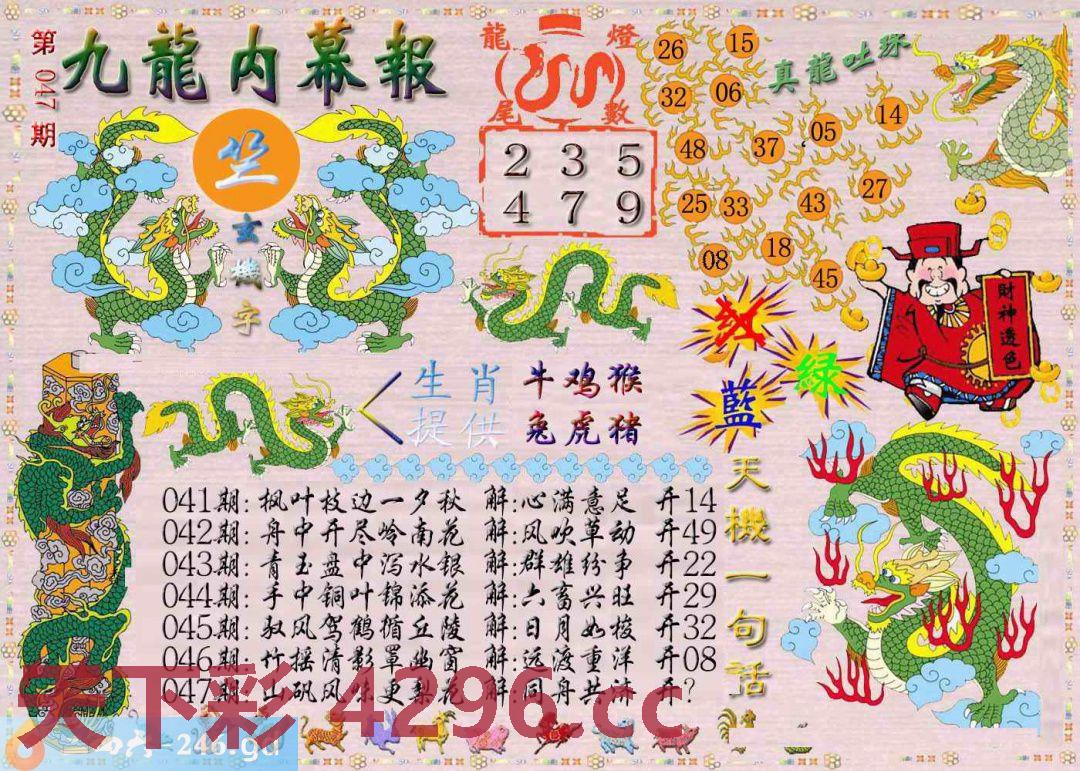 第047期
九龍内幕報
竺
玄機字
龍燈
尾數
2 3 5
4 7 9
真龍吐珠
26 15
32 06
48 37 05 14
25 33 43 27
08 18 45
财神透色
红
绿
藍
生肖
提供
牛鸡猴
兔虎猪
天機一句话
041期:枫叶枝边一夕秋 解:心满意足 开14
042期:舟中开尽岭南花 解:风吹草动 开49
043期:青玉盘中泻水银 解:群雄纷争 开22
044期:手中铜叶锦添花 解:六畜兴旺 开29
045期:驭风驾鹤循丘陵 解:日月如梭 开32
046期:竹摇清影罩幽窗 解:远渡重洋 开08
047期:山矾风味更梨花 解:同舟共济 开?
天下彩 4296.cc
=246.gd